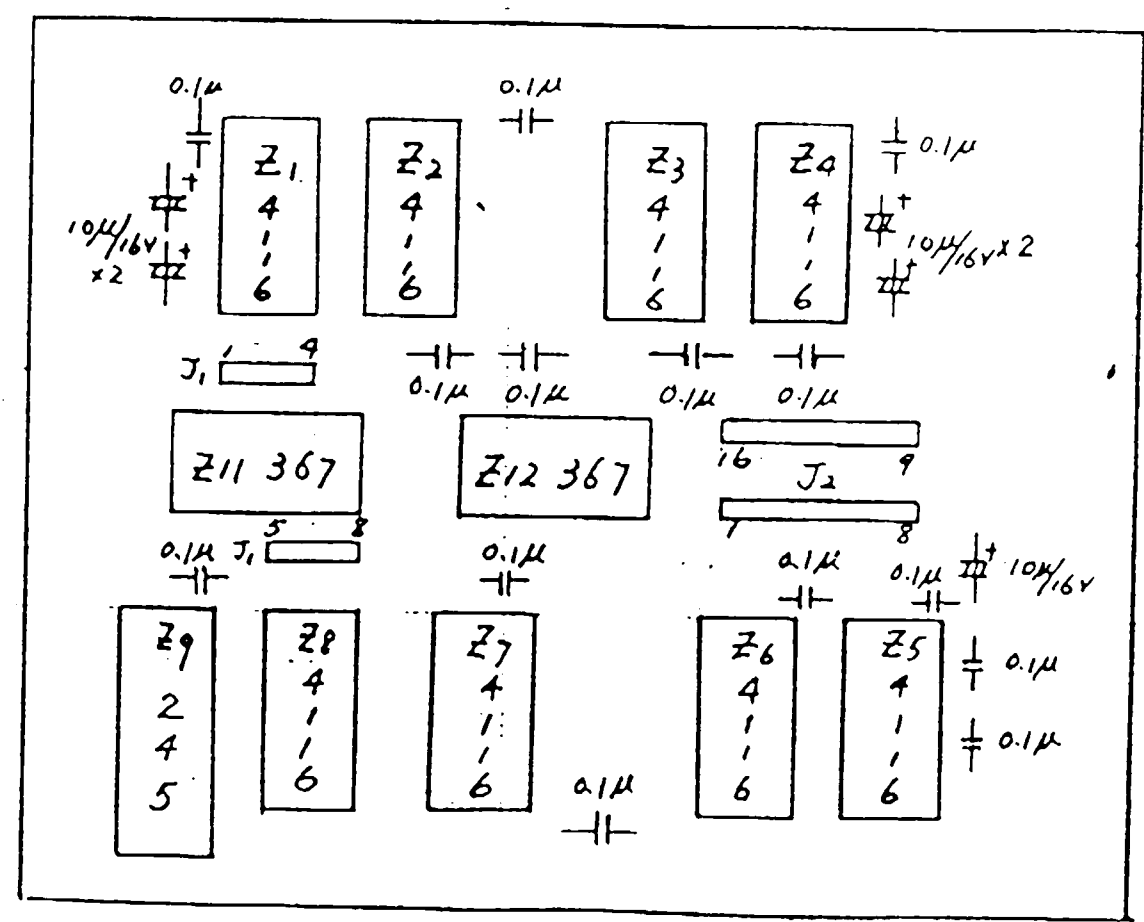 0.1μ
0.1μ
Z1
4
1
1
6
Z2
4
1
1
6
Z3
4
1
1
6
Z4
4
1
1
6
0.1μ
+
+
10μ/16v
x2
+
+
10μ/16v x2
J1
1 4
0.1μ
0.1μ
0.1μ
0.1μ
Z11 367
Z12 367
16 9
J2
1 8
5 8
J1
0.1μ
0.1μ
0.1μ
0.1μ
+
10μ/16v
Z9
2
4
5
Z8
4
1
1
6
Z7
4
1
1
6
Z6
4
1
1
6
Z5
4
1
1
6
0.1μ
0.1μ
0.1μ